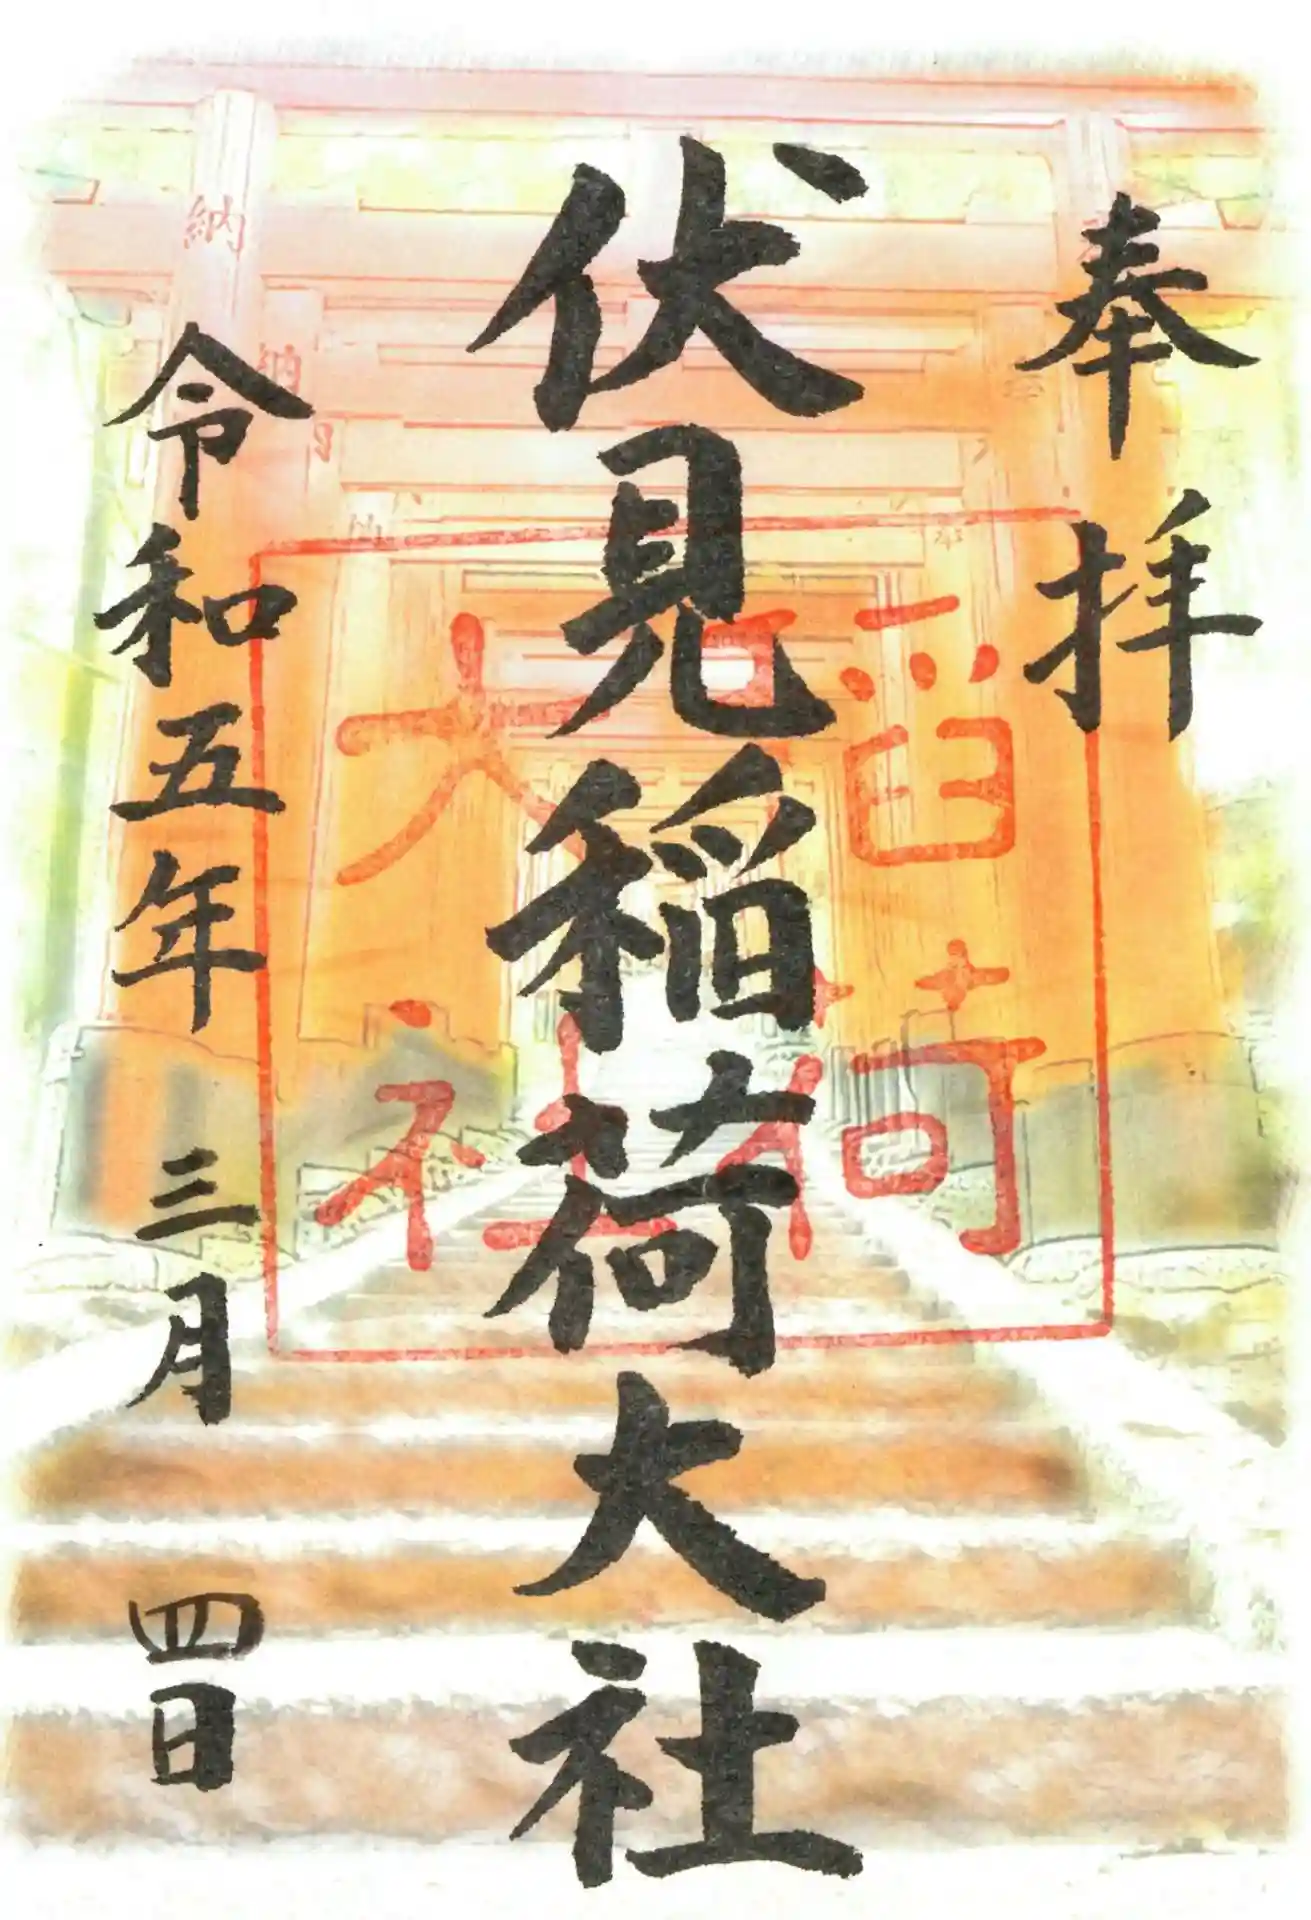 奉拝
伏見稲荷大社
稲荷
大社
令和五年 三月 四日
納
納